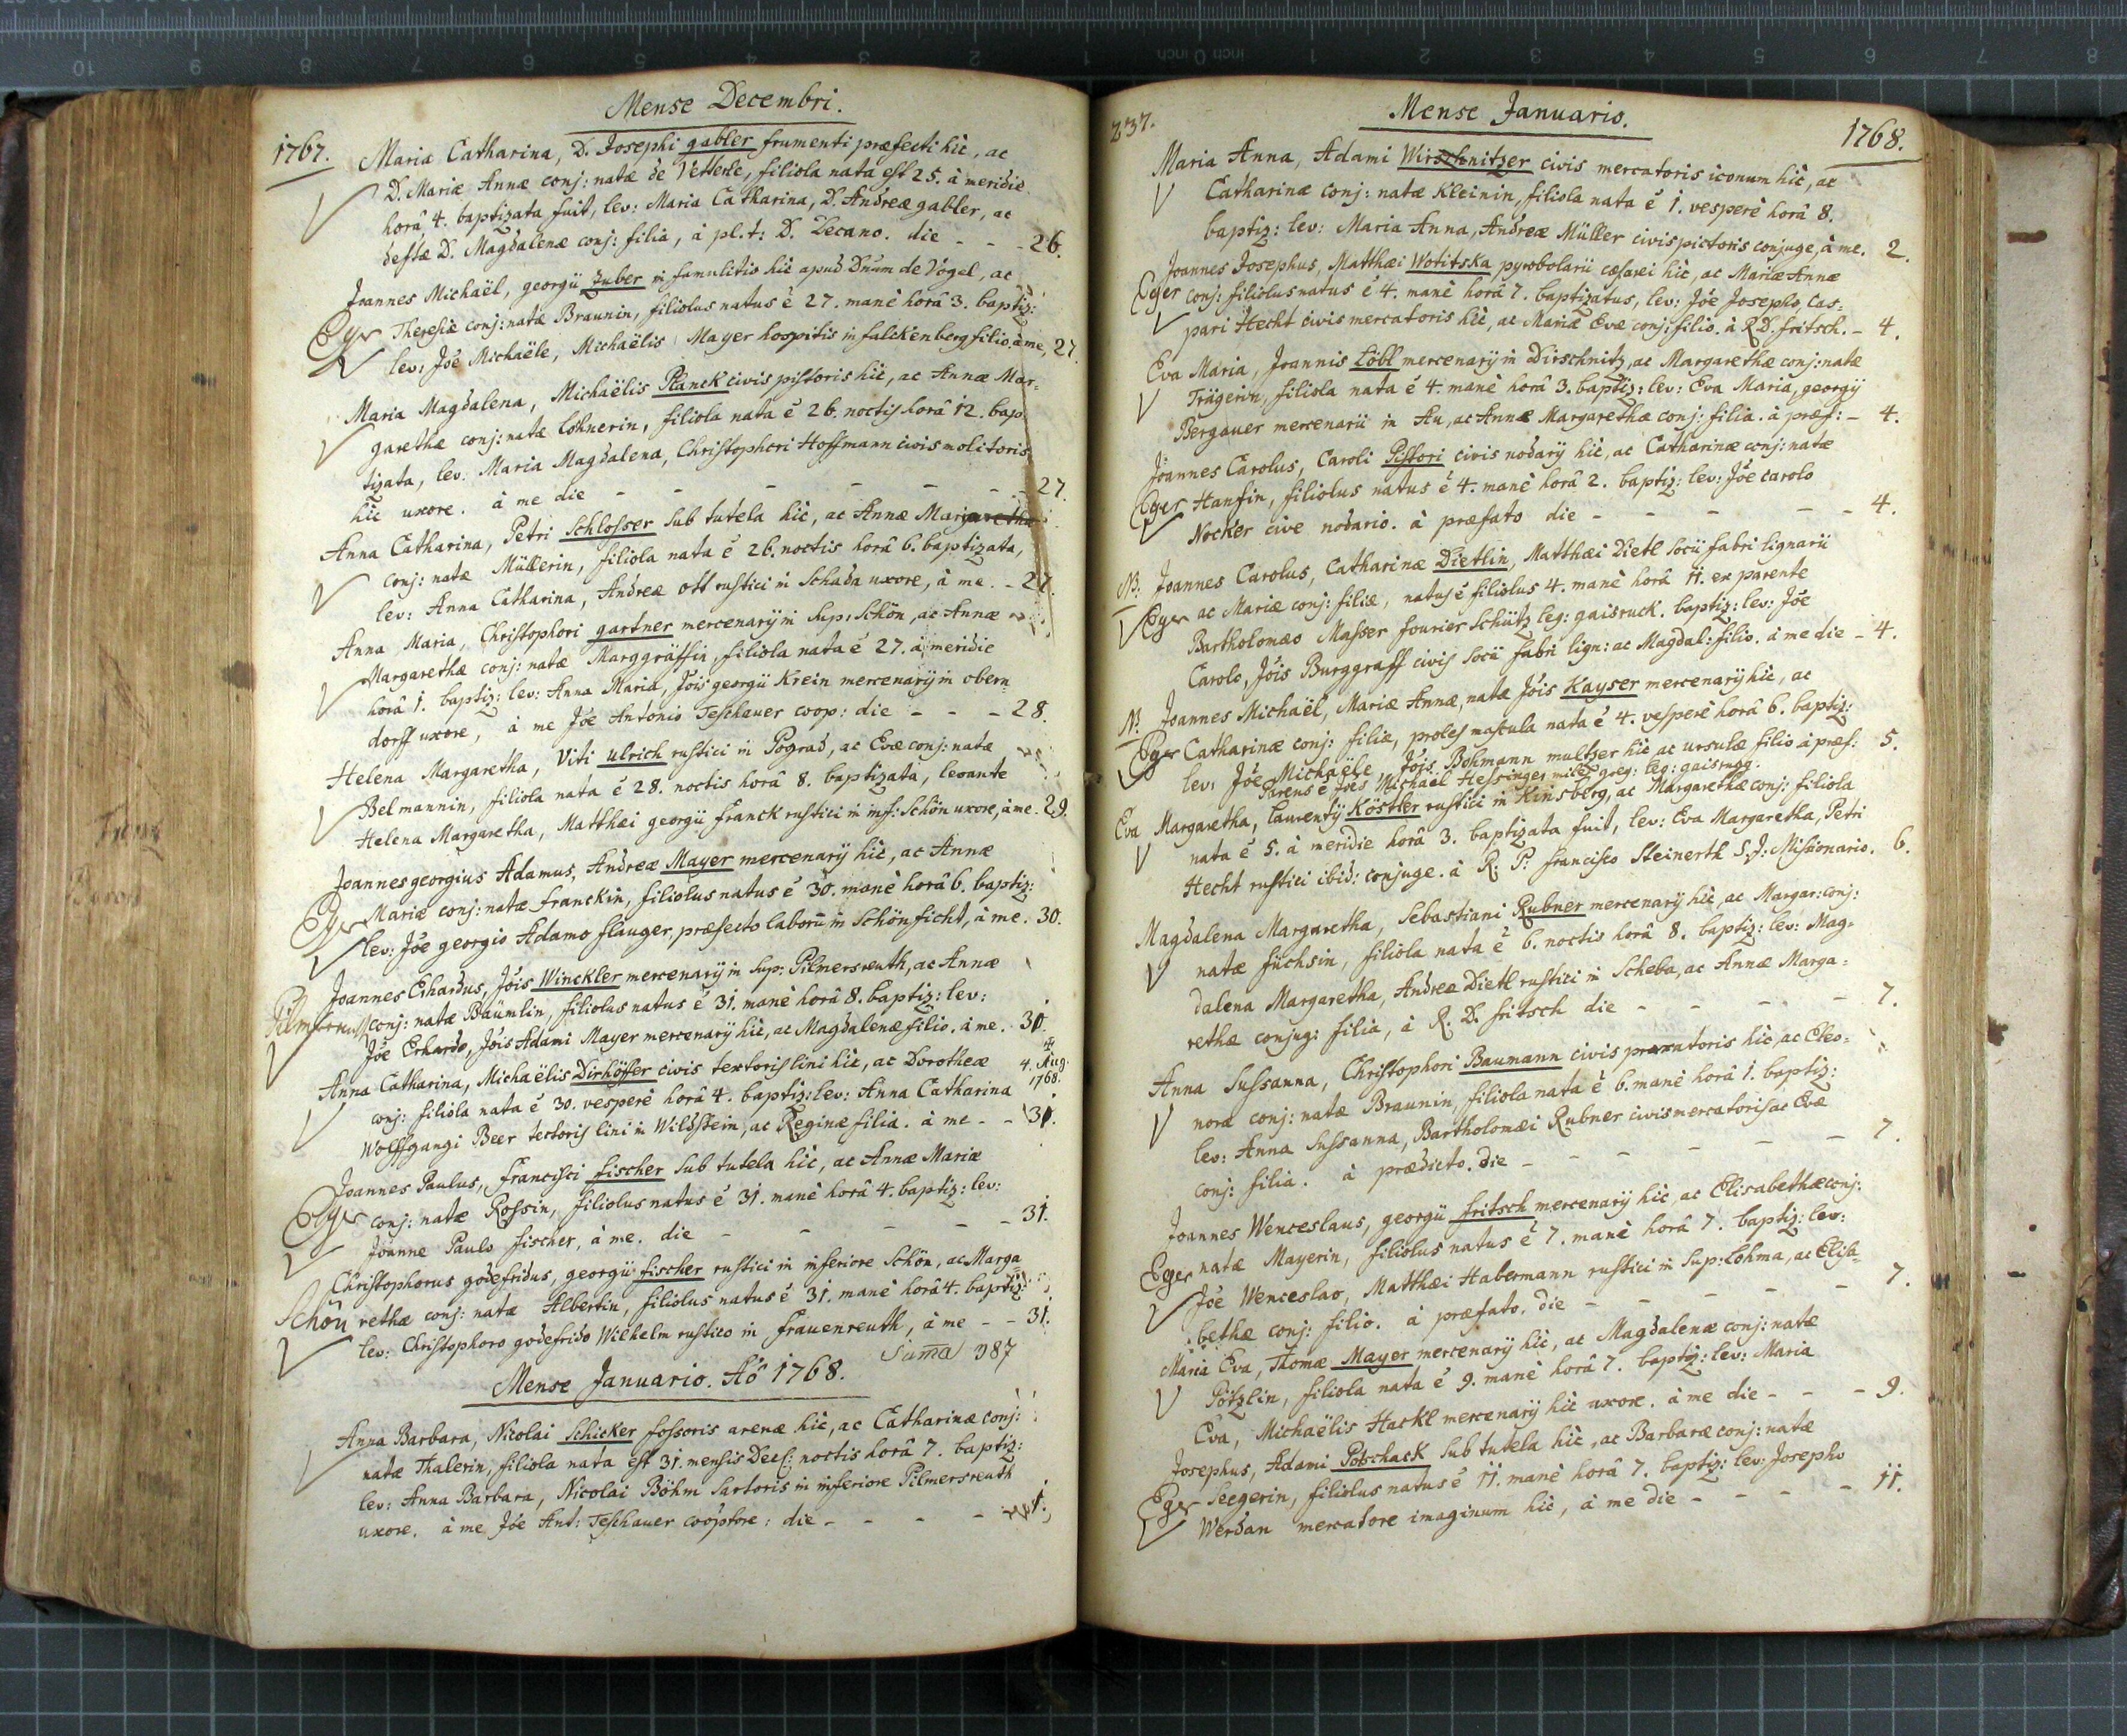 Mense Decembri.
1767.
Maria Catharina, D. Josephi gabler frumenti præfecti hic, ac
D. Mariæ Annæ conj: natæ de Vetterle, filiola nata est 25. à meridie
horâ 4. baptizata fuit, lev: Maria Catharina, D. Andreæ gabler, ac
destæ D. Magdalenæ conj: filia, à pl. t: D. Decano. die - - - 26.
Joannes Michaël, georgii Zuber in famulitio hic apud Dnum de Vogel, ac
Eger Theresiæ conj: natæ Braunin, filiolus natus ê 27. manè horâ 3. baptiz:
lev: Jôe Michaële, Michaëlis Mayer hospitis in falckenberg filio. à me, 27.
Maria Magdalena, Michaëlis Planck civis pistoris hic, ac Annæ Mar-
garethæ conj: natæ Löhnerin, filiola nata ê 26. noctis horâ 12. bap
tizata, lev: Maria Magdalena, Christophori Hoffmann civis molitoris
hic uxore. à me die - - - - - - 27.
Anna Catharina, Petri Schlosser sub tutela hic, ac Annæ Margaretha
conj: natæ Müllerin, filiola nata ê 26. noctis horâ 6. baptizata,
lev: Anna Catharina, Andreæ ott rustici in Schada uxore, à me. - 27.
Anna Maria, Christophori gartner mercenarÿ in sup: Schön, ac Annæ
Margarethæ conj: natæ Marggräffin, filiola nata ê 27. à meridie
horâ 1. baptiz: lev: Anna Maria, Jôis georgii Krein mercenarÿ in obern-
dorff uxore, à me Jôe Antonio Teschauer coop: die - - - 28.
Helena Margaretha, Viti ulrich rustici in Pograd, ac Evæ conj: natæ
Belmannin, filiola nata ê 28. noctis horâ 8. baptizata, levante
Helena Margaretha, Matthæi georgii Franck rustici in inf: Schön uxore, à me. 29.
Joannes georgius Adamus, Andreæ Mayer mercenarÿ hic, ac Annæ
Eger Mariæ conj: natæ franckin, filiolus natus ê 30. manè horâ 6. baptiz:
lev: Jôe georgio Adamo flauger, præfecto laborū in Schönficht, à me. 30.
Joannes Erhardus, Jôis Winckler mercenarÿ in Sup: Pilmersreuth, ac Annæ
Pilmersreuth conj: natæ Bäumlin, filiolus natus ê 31. manè horâ 8. baptiz: lev:
Jôe Erhardo, Jôis Adami Mayer mercenarÿ hic, ac Magdalenæ filio. à me. 31.
Anna Catharina, Michaëlis Dirhöffer civis textoris lini hic, ac Dorotheæ
† 4. Aug. 1768.
conj: filiola nata ê 30. vesperè horâ 4. baptiz: lev: Anna Catharina
Wolffgangi Beer textoris lini in Wildstein, ac Reginæ filia. à me - - 31.
Joannes Paulus, francisci fischer sub tutela hic, ac Annæ Mariæ
Eger conj: natæ Rossin, filiolus natus ê 31. manè horâ 4. baptiz: lev:
Joanne Paulo fischer, à me. die - - - - - 31.
Christophorus godefridus, georgii fischer rustici in inferiore Schön, ac Marga-
Schön rethæ conj: natæ Albertin, filiolus natus ê 31. manè horâ 4. baptiz:
lev: Christophoro godefrido Wilhelm rustico in frauenreuth, à me - - 31.
Sum̄a 387
Mense Januario. Aô 1768.
Anna Barbara, Nicolai Schicker fossoris arenæ hic, ac Catharinæ conj:
natæ Thalerin, filiola nata est 31. mensis Dec: noctis horâ 7. baptiz:
lev: Anna Barbara, Nicolai Böhm sartoris in inferiore Pilmersreuth
uxore. à me Jôe Ant: Teschauer cooptore: die - - - - 1.
237.
Mense Januario.
1768.
Maria Anna, Adami Wirschnitzer civis mercatoris iconum hic, ac
Catharinæ conj: natæ Kleinin, filiola nata ê 1. vesperè horâ 8.
baptiz: lev: Maria Anna, Andreæ Müller civis pictoris conjuge, à me. 2.
Joannes Josephus, Matthæi Wotitska pyrobolarii cæsarei hic, ac Mariæ Annæ
Eger conj: filiolus natus ê 4. manè horâ 7. baptizatus, lev: Jôe Josepho, Cas-
pari Hecht civis mercatoris hic, ac Mariæ Evæ conj: filio. à R. D. fritsch. - 4.
Eva Maria, Joannis Löbl mercenarÿ in Dirschnitz, ac Margarethæ conj: natæ
Trägerin, filiola nata ê 4. manè horâ 3. baptiz: lev: Eva Maria, georgÿ
Bergauer mercenarii in Au, ac Annæ Margarethæ conj: filia. à præf: - 4.
Joannes Carolus, Caroli Pistori civis nodarÿ hic, ac Catharinæ conj: natæ
Eger Hansin, filiolus natus ê 4. manè horâ 2. baptiz: lev: Jôe carolo
Nocker cive nodario. à præfato die - - - - - 4.
NB. Joannes Carolus, Catharinæ Dietlin, Matthæi Dietl socii fabri lignarii
Eger ac Mariæ conj: filiæ, natus ê filiolus 4. manè horâ 11. ex parente
Bartholomæo Masser fourier schütz leg: gaisruck. baptiz: lev: Jôe
Carolo, Jôis Burggraff civis socii fabri lign: ac Magdal: filio. à me die - 4.
N. Joannes Michaël, Mariæ Annæ, natæ Jôis Kayser mercenarÿ hic, ac
Eger Catharinæ conj: filiæ, proles mascula nata ê 4. vesperè horâ 6. baptiz:
lev: Jôe Michaële, Jôis Bohmann multzer hic ac ursulæ filio à præf: 5.
Parens ê Jôes Michaël Hessinger miles greg: leg: gaisrugg.
Eva Margaretha, Laurentÿ Köstler rustici in Kinsberg, ac Margarethæ conj: filiola
nata ê 5. à meridie horâ 3. baptizata fuit, lev: Eva Margaretha, Petri
Hecht rustici ibid: conjuge. à R: P: francisco Steinerth S. J: Missionario. 6.
Magdalena Margaretha, Sebastiani Rubner mercenarÿ hic, ac Margar: conj:
natæ füchsin, filiola nata ê 6. noctis horâ 8. baptiz: lev: Mag-
dalena Margaretha, Andreæ Dietl rustici in Scheba, ac Annæ Marga-
rethæ conjug: filia, à R. D. fritsch die - - - - 7.
Anna Sussanna, Christophori Baumann civis praxatoris hic, ac Eleo-
noræ conj: natæ Braunin, filiola nata ê 6. manè horâ 1. baptiz:
lev: Anna Sussanna, Bartholomæi Rubner civis mercatoris ac Evæ
conj: filia. à prædicto. die - - - - - 7.
Joannes Wenceslaus, georgii fritsch mercenarÿ hic, ac Elisabethæ conj:
Eger natæ Mayerin, filiolus natus ê 7. manè horâ 7. baptiz: lev:
Jôe Wenceslao, Matthæi Habermann rustici in Sup: Lohma, ac Elisa-
bethæ conj: filio. à præfato. die - - - - - 7.
Maria Eva, Thomæ Mayer mercenarÿ hic, ac Magdalenæ conj: natæ
Pötzlin, filiola nata ê 9. manè horâ 7. baptiz: lev: Maria
Eva, Michaëlis Hackl mercenarÿ hic uxore. à me die - - - 9.
Josephus, Adami Potschack sub tutela hic, ac Barbaræ conj: natæ
Eger Seegerin, filiolus natus ê 11. manè horâ 7. baptiz: lev: Josepho
Werdan mercatore imaginum hic, à me die - - - - 11.